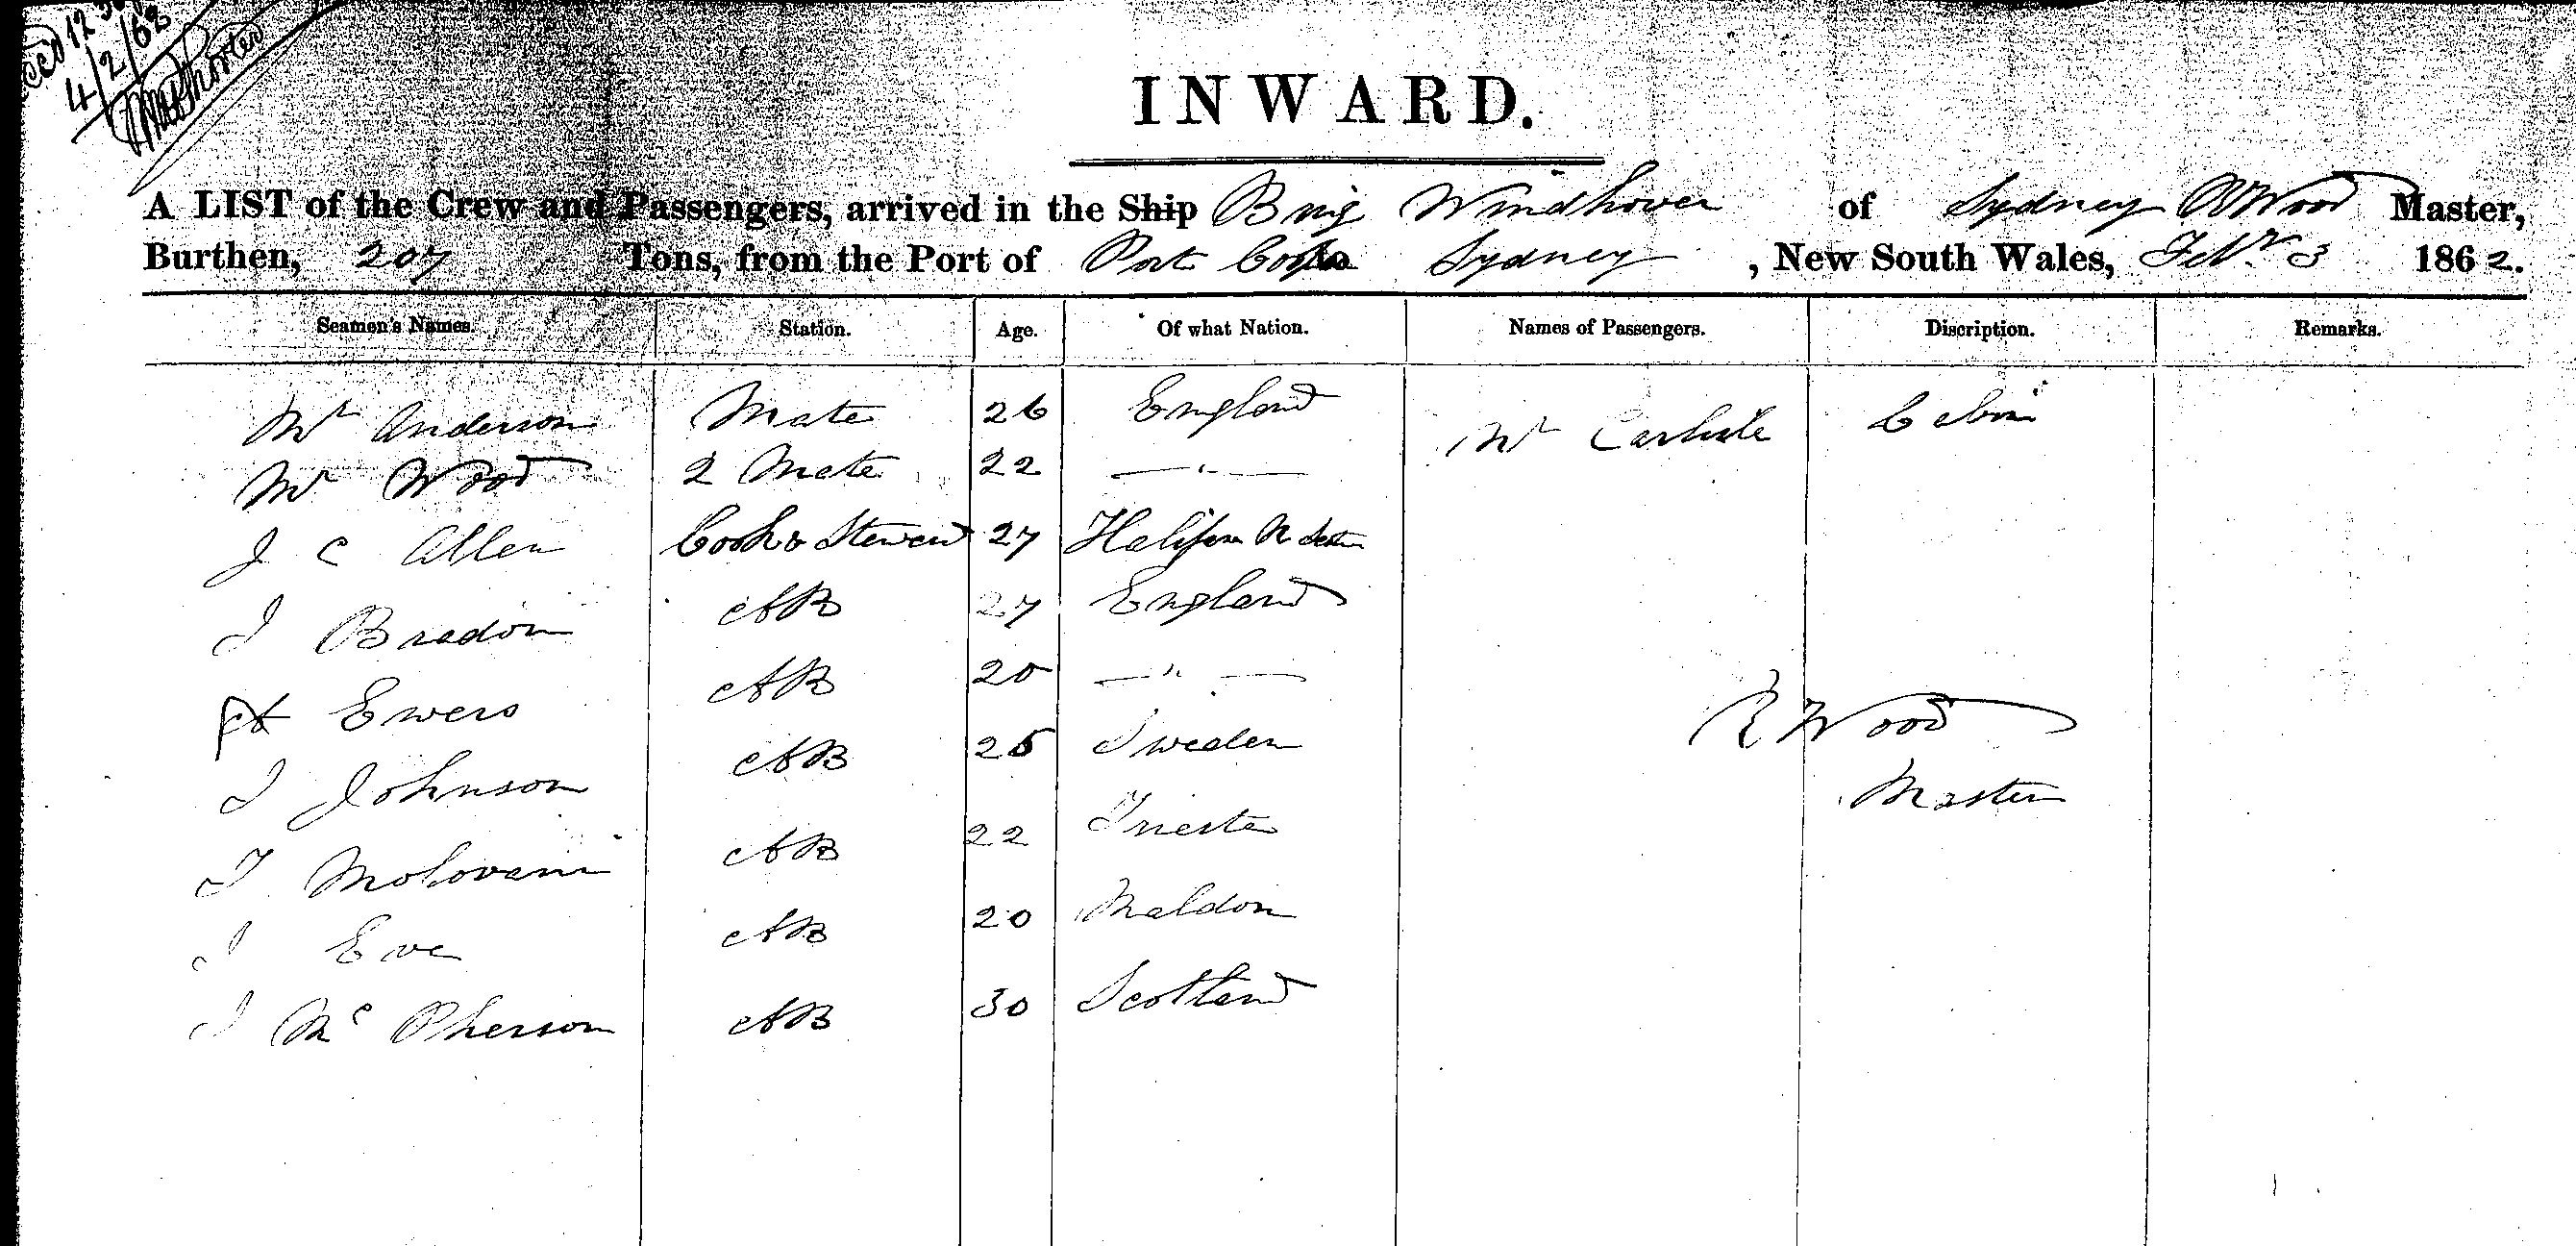 4/2/62
INWARD.
A LIST of the Crew and Passengers, arrived in the Ship Brig Windhover of Sydney R Wood Master,
Burthen, 207 Tons, from the Port of Port Cooper to Sydney, New South Wales, Feby 3 1862.
Seamen's Names. Station. Age. Of what Nation. Names of Passengers. Discription. Remarks.
Mr Anderson Mate 26 England Mr Carlisle Cabin
Mr Wood 2 Mate 22 — " —
J C Allen Cook & Steward 27 Halifax N Scotia
J Bradon AB 27 England
A Ewers AB 20 — " —
J Johnson AB 25 Sweden
R Wood
Master
J AB 22 Trieste
J Eve AB 20 Maldon
J Mc Pherson AB 30 Scotland